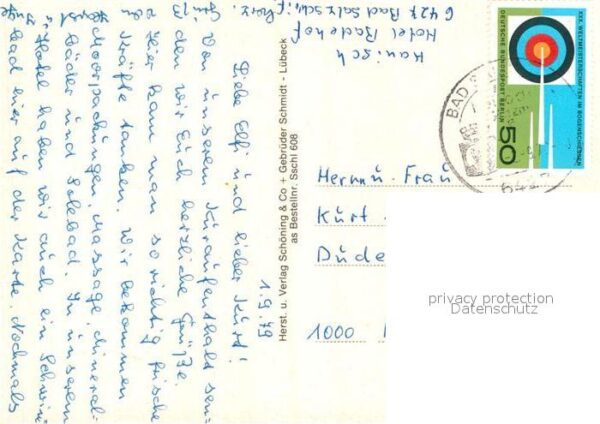 1.9.79
Liebe Elfi und lieber Kurt!
Von unserem Kuraufenthalt sen-
den wir Euch herzliche Grüße.
Hier kann man so richtig frische
Kräfte tanken. Wir bekommen
Moorpackungen, Massage, Mineral-
Bäder und Solebad. In unserem
Hotel haben wir auch ein Schwimm
Bad hier auf der Karte. Nochmals
Hanisch
Hotel Badehof
6427 Bad Salzschlirf
Herst. u. Verlag Schöning & Co + Gebrüder Schmidt - Lübeck
as Bestellnr. Sschl 608
XXX. WELTMEISTERSCHAFTEN IM BOGENSCHIESSEN
DEUTSCHE BUNDESPOST BERLIN
50
BAD
6427
Herrn u. Frau
Kurt
Dude
1000
privacy protection
Datenschutz